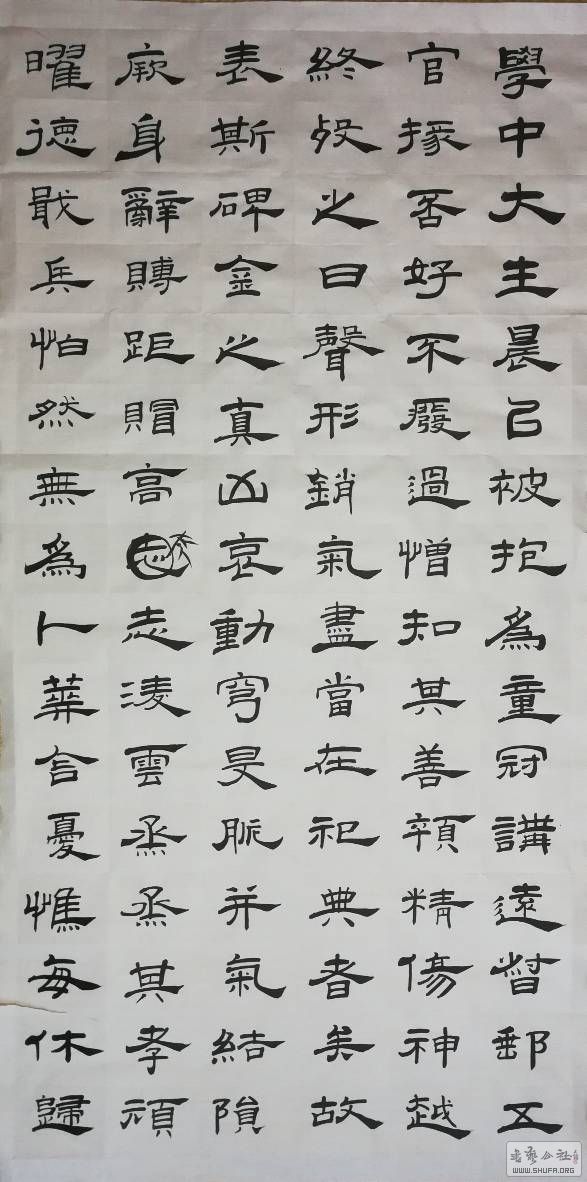 學中大主晨已被抱為童冠講遠督郵五
官掾否好不廢過憎知其善頯精傷神越
終歿之日聲形銷氣盡當在祀典者矣故
表斯碑金之真凶哀動穹旻脈并氣結隕
厥身辭賻距賵高志凌雲烝烝其孝頑
曜德戢兵怕然無為卜葬含憂憔每休歸
WWW.SHUFA.ORG